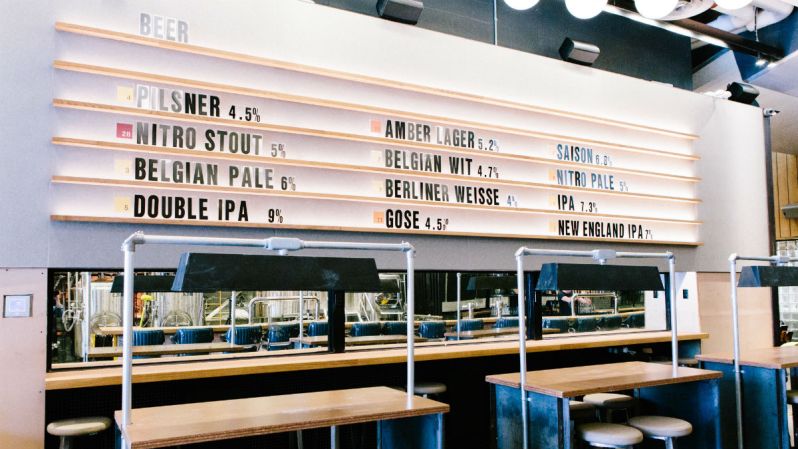 BEER
PILSNER 4.5%
NITRO STOUT 5%
BELGIAN PALE 6%
DOUBLE IPA 9%
AMBER LAGER 5.2%
BELGIAN WIT 4.7%
BERLINER WEISSE 4%
GOSE 4.5%
SAISON 6.8%
NITRO PALE 5%
IPA 7.3%
NEW ENGLAND IPA 7%